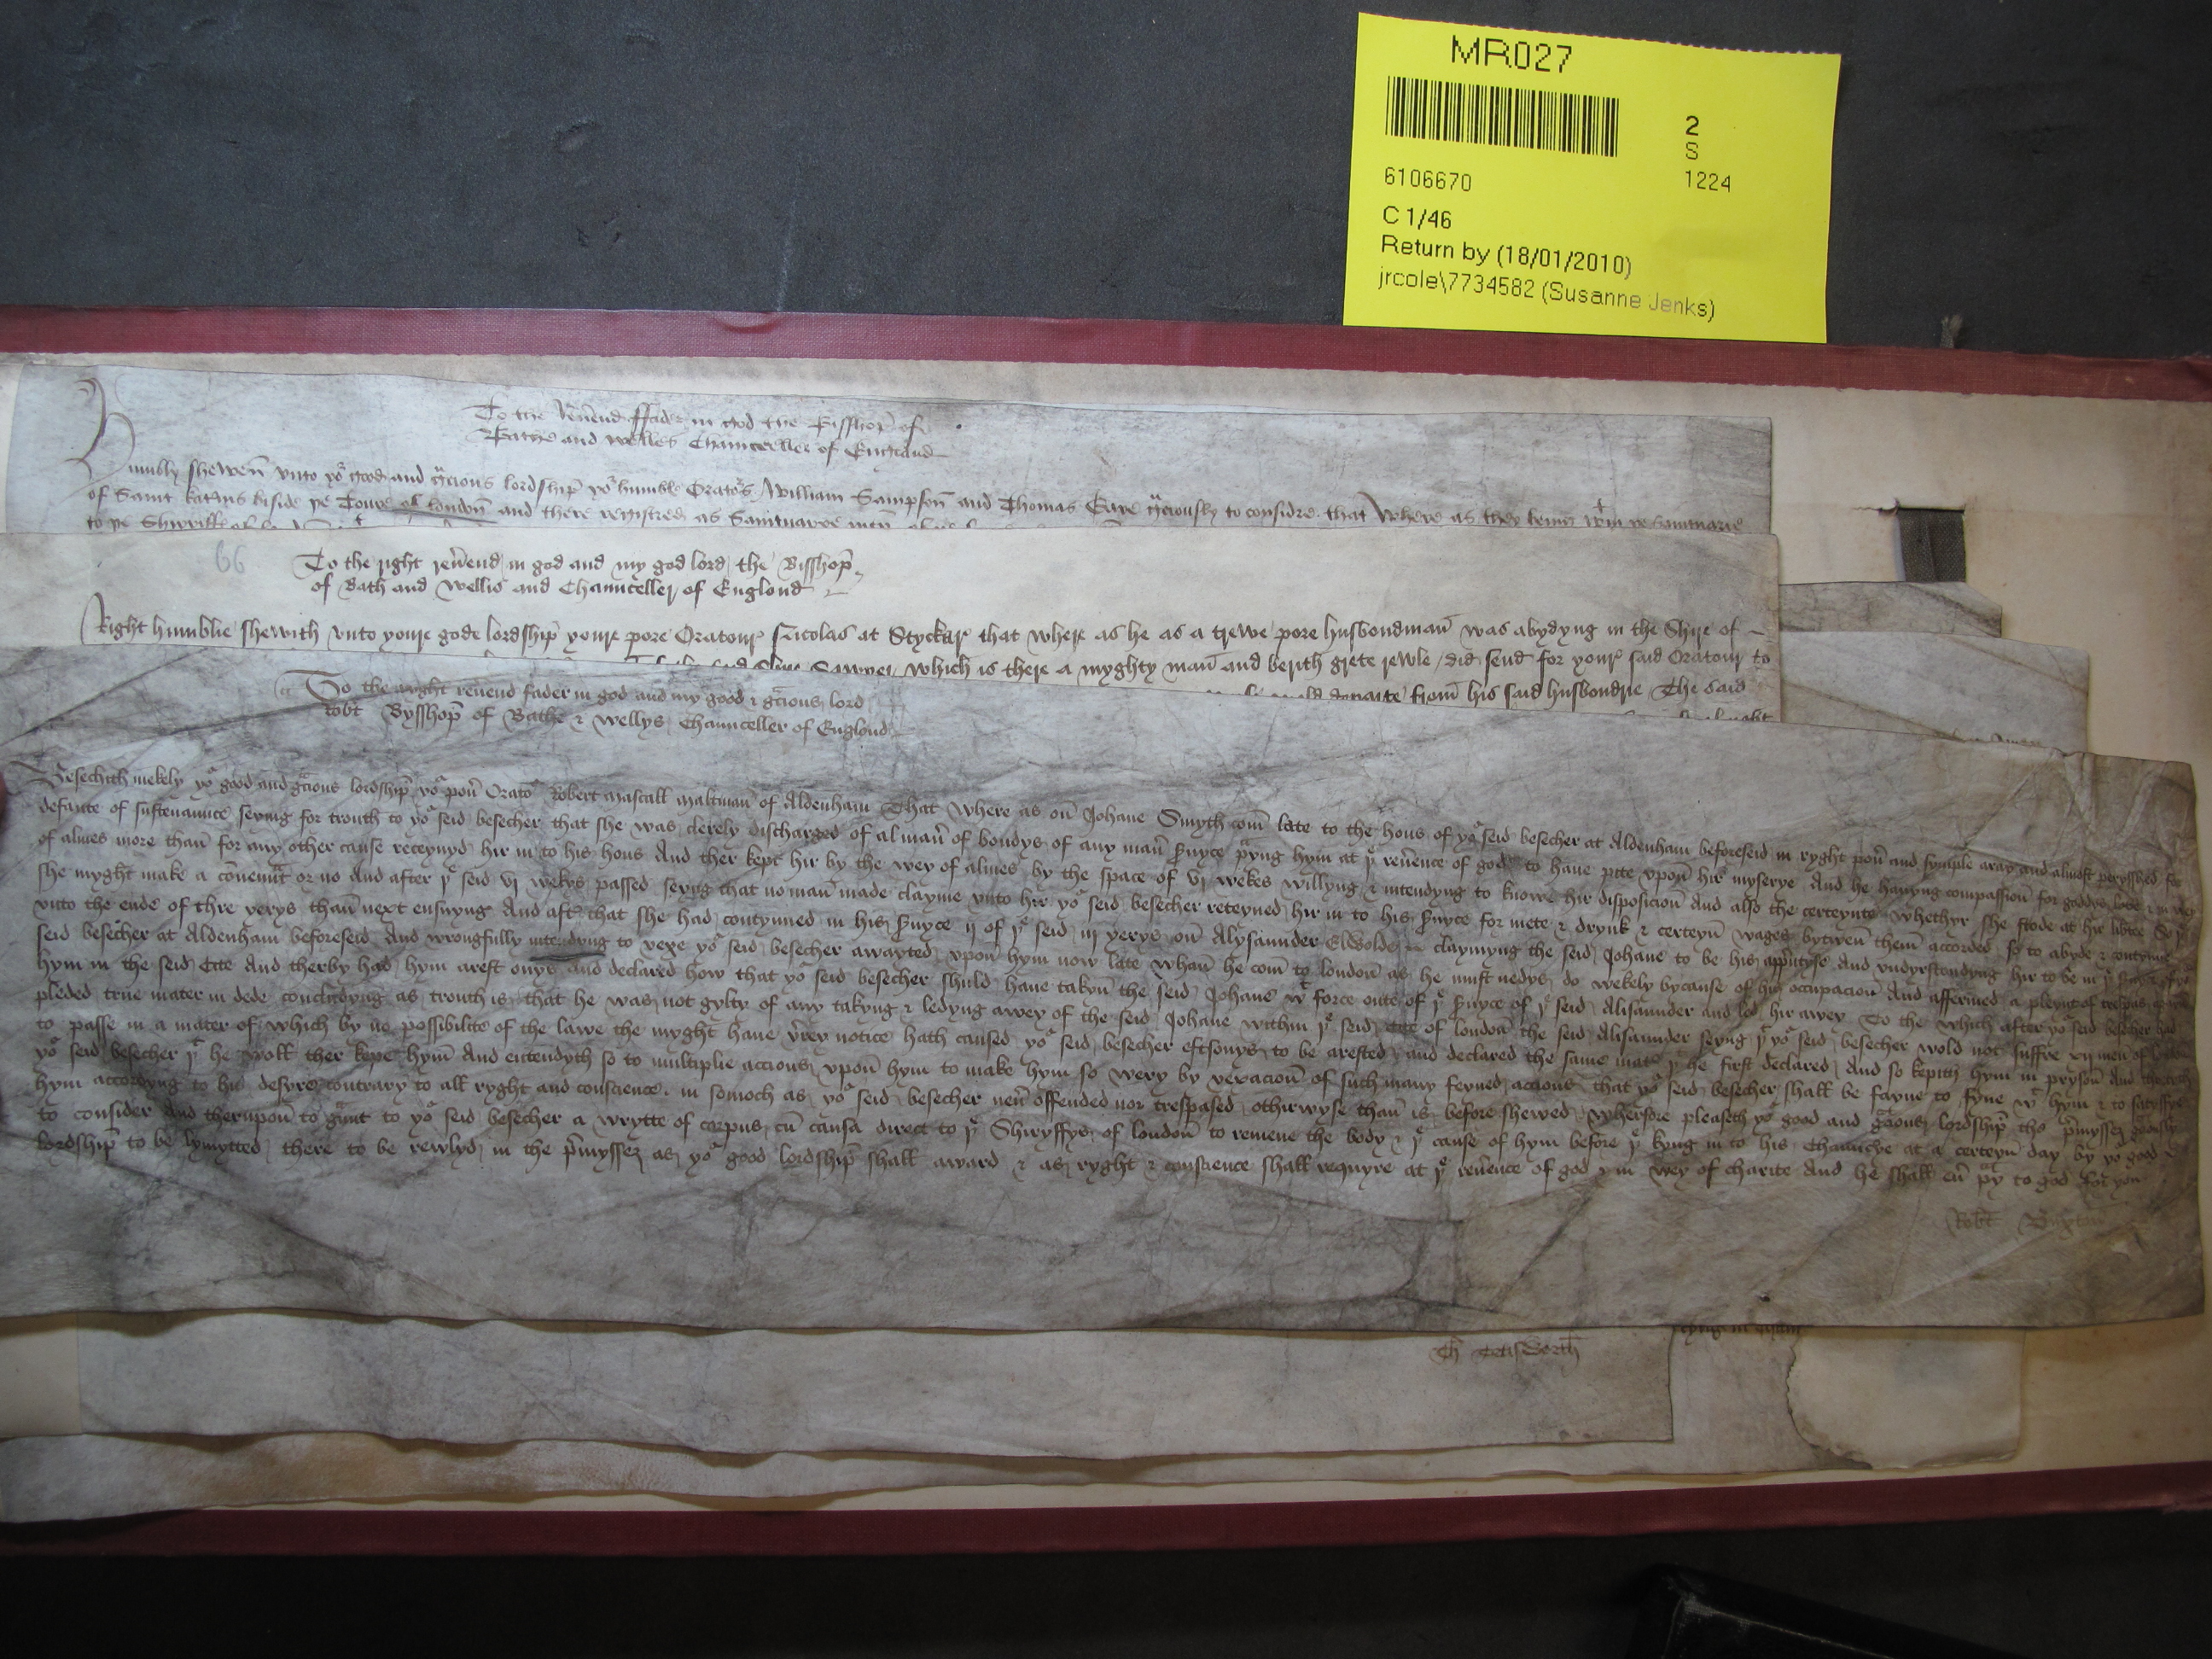 MR027
2
S
6106670
1224
C 1/46
Return by (18/01/2010)
jrcole\7734582 (Susanne Jenks)
To the Reu͛end ffader in god the Bisshop̄ of
Bathe and Welles Chaunceller of England
Humbly shewen̄ vnto yoͬ good and gͣcious lordship̄ yoͬ humble Oratoͬs William Sampson̄ and Thomas Cave gͣciously to considre that Where as they being wͭin ye Seintuarie
of Saint Kat͛ins biside ye Toure of london̄ and there registred as Seintuarye men
to ye Shiriffs of
66
To the right reu͛end in god and my god lord the Bisshop̄
of Bath and Wellis and Chaunceller of Englond
Right humblie shewith vnto youre gode lordship̄ youre pore Oratour Nicolas at Styckar that where as he as a trewe pore husbondman̄ was abydyng in the Shire of
Sawyer which is there a myghty man̄ and berith grete rewle did send for your said Oratour to
departe from̄ his said husbondrie The said
To the ryght reu͛end fader in god and my good & gͣcious lord
Rob̄t Bysshop̄ of Bathe & Wellys Chaunceller of Englond
Besechith mekely yoͬ good and gͣcious lordship̄ yoͬ pou͛ Oratoͬ Robert Mascall maltman̄ of Aldenham That Where as on̄ Johane Smyth com̄ late to the hous of yoͬ seid besecher at Aldenham beforeseid in ryght pou͛ and symple aray and almost perysshed for
defaute of sustenaunce seying for trouth to yoͬ seid besecher that she was clerely discharged of al man͛ of bondys of any man̄ s͛uyce pͣyng hym at yͤ reu͛ence of god to haue pite vpon̄ hir myserye And he hauyng compassion̄ for goddys loue & in wey
of almes more than̄ for any other cause receyuyd hir in to his hous And ther kept hir by the wey of almes by the space of vj wekes willyng & intendyng to knowe hir disposicion̄ And also the certeynte whethyr she stode at hir lib͛te & yͭ
she myght make a cou͛enunt or no And after yͤ seid vj wekys passed seyng that no man̄ made clayme vnto hir yoͬ seid besecher reteyned hir in to his s͛uyce for mete & drynk & certeyn̄ wages bytwen̄ them accorded so to abyde & contynue
vnto the ende of thre yerys than̄ next ensuyng And aft͛ that she had contynued in his s͛uyce ij of yͤ seid iij yerys on̄ Alysaunder Elwolde claymyng the seid Johane to be his app͛ntyse And vndyrstondyng hir to be in yͤ s͛uyce of yoͬ
seid besecher at Aldenham beforeseid And wrongfully intendyng to vexe yoͬ seid besecher awayted vpon̄ hym now late whan̄ he com̄ to london̄ as he must nedys do wekely bycause of his occupacion̄ And affermed a pleynt of trespas
hym in the seid Cite And therby had hym arest onys and declared how that yoͬ seid besecher shuld haue takyn̄ the seid Johane wͭ force oute of yͤ s͛uyce of yͤ seid Alisaunder and led hir awey To the which after yoͬ seid besecher had
pleded true mater in dede concludyng as trouth is that he was not gylty of any takyng & ledyng awey of the seid Johane within yͤ seid Cite of london̄ the seid Alisaunder seyng yͭ yoͬ seid besecher wold not suffre xij men of
to passe in a mater of which by no possibilite of the lawe the myght haue v͛rey notice hath caused yoͬ seid besecher eftsonys to be arested and declared the same mat͛ yͭ he first declared And so kepith hym in pryson̄ And
yoͬ seid besecher yͭ he woll ther kepe hym̄ And entendyth so to multiplie accions vpon̄ hym to make hym so wery by vexacion̄ of such many feyned accions that yoͬ seid besecher shall be fayne to fyne wͭ hym & to satysfye
hym accordyng to his desyre contrary to all ryght and conscience in somoch as yoͬ seid besecher neu͛ offended nor trespased othirwyse than̄ is before shewed Wherfore pleaseth yoͬ good and gͣcious lordship̄ tho p͛mysses
to consider And therupon̄ to gͣunt to yoͬ seid besecher a wrytte of corpus cū causa direct to yͤ Shiryffys of london̄ to remeue the body & yͤ cause of hym before yͤ kyng in to his Chauncye at a certeyn̄ day by yoͬ good
lordship̄ to be lymytted there to be rewlyd in the p͛mysses as yoͬ good lordship̄ shall award & as ryght & conscience shall requyre at yͤ reu͛ence of god & in wey of charite And he shall eu͛ pͣy to god for you
Rob̄t Buxton
Th̄ Tetisworth